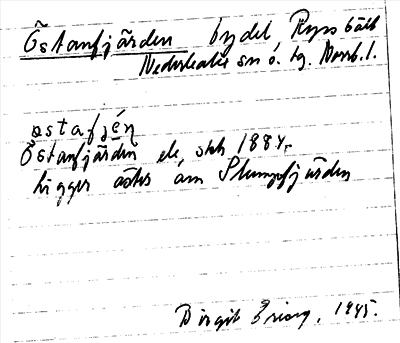 Östanfjärden bydel Ryss bält
Nederkalix sn ö. tg. Norrb. l.
östafjén
Östanfjärden ek. skk 1884
ligger öster om Stumpfjärden
Birgit Falck, 1945.